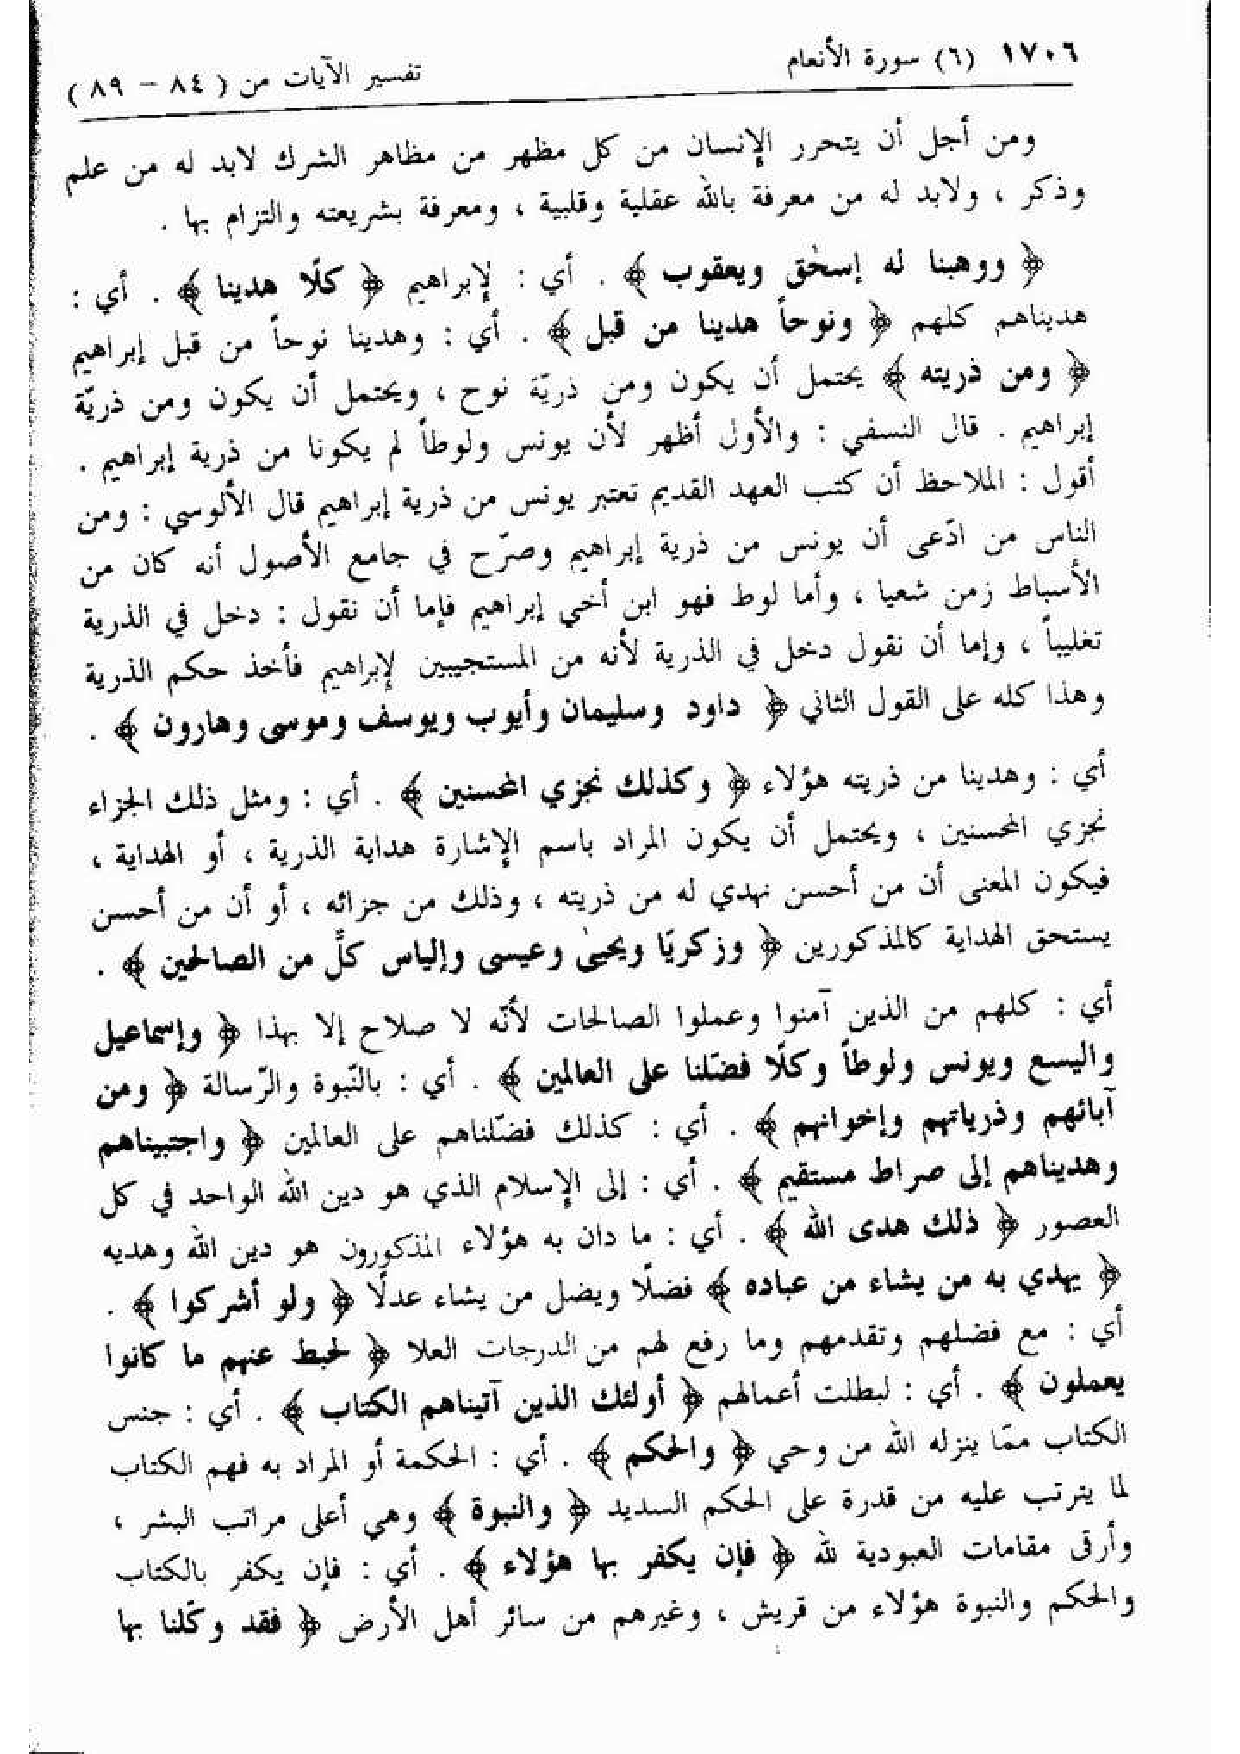 ١٧٠٦ (٦) سورة الأنعام تفسير الآيات من ( ٨٤ – ٨٩ )
ومن أجل أن يتحرر الإنسان من كل مظهر من مظاهر الشرك لابد له من علم
وذكر ، ولابد له من معرفة بالله عقلية وقلبية ، ومعرفة بشريعته والتزام بها .
﴿ ووهبنا له إسحٰق ويعقوب ﴾ . أي : لإبراهيم ﴿ كلًا هدينا ﴾ . أي :
هديناهم كلهم ﴿ ونوحاً هدينا من قبل ﴾ . أي : وهدينا نوحاً من قبل إبراهيم
﴿ ومن ذريته ﴾ يحتمل أن يكون ومن ذريّة نوح ، ويحتمل أن يكون ومن ذريّة
إبراهيم . قال النسفي : والأول أظهر لأن يونس ولوطاً لم يكونا من ذرية إبراهيم .
أقول : الملاحظ أن كتب العهد القديم تعتبر يونس من ذرية إبراهيم قال الألوسي : ومن
الناس من ادّعى أن يونس من ذرية إبراهيم وصرّح في جامع الأصول أنه كان من
الأسباط زمن شعيا ، وأما لوط فهو ابن أخي إبراهيم فإما أن نقول : دخل في الذرية
تغليباً ، وإما أن نقول دخل في الذرية لأنه من المستجيبين لإبراهيم فأخذ حكم الذرية
وهذا كله على القول الثاني ﴿ داود وسليمان وأيوب ويوسف وموسى وهارون ﴾ .
أي : وهدينا من ذريته هؤلاء ﴿ وكذلك نجزي المحسنين ﴾ . أي : ومثل ذلك الجزاء
نجزي المحسنين ، ويحتمل أن يكون المراد باسم الإشارة هداية الذرية ، أو الهداية ،
فيكون المعنى أن من أحسن نهدي له من ذريته ، وذلك من جزائه ، أو أن من أحسن
يستحق الهداية كالمذكورين ﴿ وزكريّا ويحيىٰ وعيسى وإلياس كلٌّ من الصالحين ﴾ .
أي : كلهم من الذين آمنوا وعملوا الصالحات لأنّه لا صلاح إلا بهذا ﴿ وإسماعيل
واليسع ويونس ولوطاً وكلًا فضّلنا على العالمين ﴾ . أي : بالنّبوة والرّسالة ﴿ ومن
آبائهم وذرياتهم وإخوانهم ﴾ . أي : كذلك فضّلناهم على العالمين ﴿ واجتبيناهم
وهديناهم إلى صراط مستقيم ﴾ . أي : إلى الإسلام الذي هو دين الله الواحد في كل
العصور ﴿ ذلك هدى الله ﴾ . أي : ما دان به هؤلاء المذكورون هو دين الله وهديه
﴿ يهدي به من يشاء من عباده ﴾ فضلًا ويضل من يشاء عدلًا ﴿ ولو أشركوا ﴾ .
أي : مع فضلهم وتقدمهم وما رفع لهم من الدرجات العلا ﴿ لحبط عنهم ما كانوا
يعملون ﴾ . أي : لبطلت أعمالهم ﴿ أولئك الذين آتيناهم الكتاب ﴾ . أي : جنس
الكتاب ممّا ينزله الله من وحي ﴿ والحكم ﴾ . أي : الحكمة أو المراد به فهم الكتاب
لما يترتب عليه من قدرة على الحكم السديد ﴿ والنبوة ﴾ وهي أعلى مراتب البشر ،
وأرقى مقامات العبودية لله ﴿ فإن يكفر بها هؤلاء ﴾ . أي : فإن يكفر بالكتاب
والحكم والنبوة هؤلاء من قريش ، وغيرهم من سائر أهل الأرض ﴿ فقد وكّلنا بها